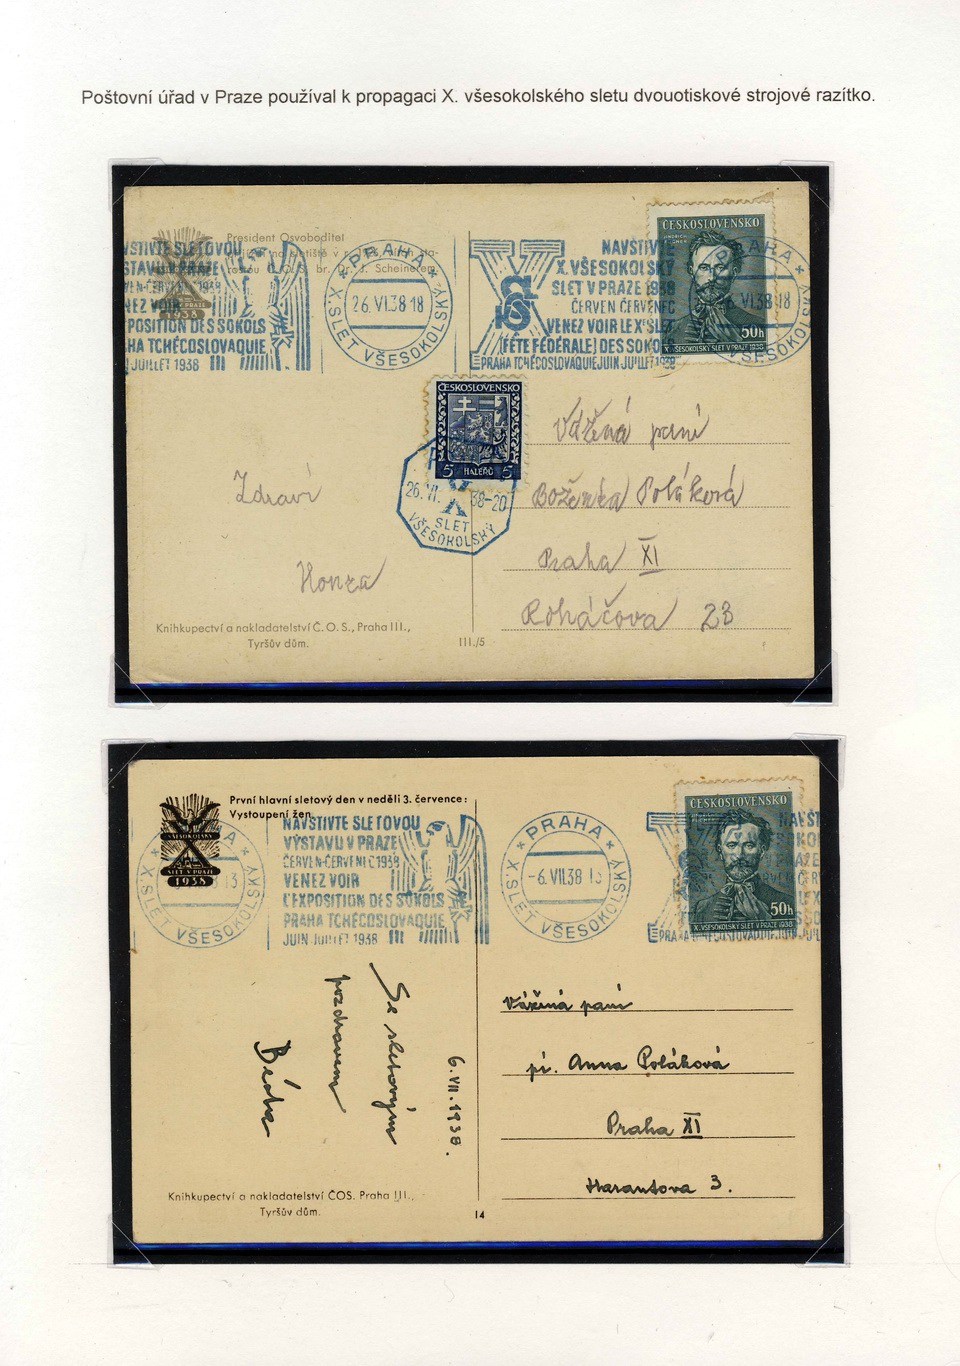 Poštovní úřad v Praze používal k propagaci X. všesokolského sletu dvouotiskové strojové razítko.
President Osvoboditel
br. Dr. J. Scheinerem.
1938
NAVŠTIVTE SLETOVOU
VÝSTAVU V PRAZE
VENEZ VOIR
L'EXPOSITION DES SOKOLS
PRAHA TCHÉCOSLOVAQUIE
JUILLET 1938
PRAHA
26.VI.38 18
X. SLET VŠESOKOLSKÝ
NAVŠTIVTE
X. VŠESOKOLSKÝ
SLET V PRAZE 1938
ČERVEN ČERVENEC
VENEZ VOIR LE X SLET
(FÊTE FÉDÉRALE) DES SOKOLS
PRAHA TCHÉCOSLOVAQUIE JUIN JUILLET 1938
ČESKOSLOVENSKO
50h
X. VŠESOKOLSKÝ SLET V PRAZE 1938
ČESKOSLOVENSKO
5 HALÉŘŮ 5
26.VI. 38-20
X
SLET
VŠESOKOLSKÝ
Vážená paní
Boženka Poláková
Praha XI
Roháčova 23
Zdraví
Honza
Knihkupectví a nakladatelství Č. O. S., Praha III.,
Tyršův dům.
III./5
První hlavní sletový den v neděli 3. července:
Vystoupení žen.
X
VŠESOKOLSKÝ
SLET V PRAZE
1938
NAVŠTIVTE SLETOVOU
VÝSTAVU V PRAZE
ČERVEN-ČERVENEC 1938
VENEZ VOIR
L'EXPOSITION DES SOKOLS
PRAHA TCHÉCOSLOVAQUIE
JUIN JUILLET 1938
PRAHA
-6.VII.38 13
X. SLET VŠESOKOLSKÝ
ČESKOSLOVENSKO
50h
X. VŠESOKOLSKÝ SLET V PRAZE 1938
Se sletovým
pozdravem
Béďa
6.VII.1938.
Vážená paní
pí. Anna Poláková
Praha XI
Harantova 3.
Knihkupectví a nakladatelství ČOS. Praha III.,
Tyršův dům.
14